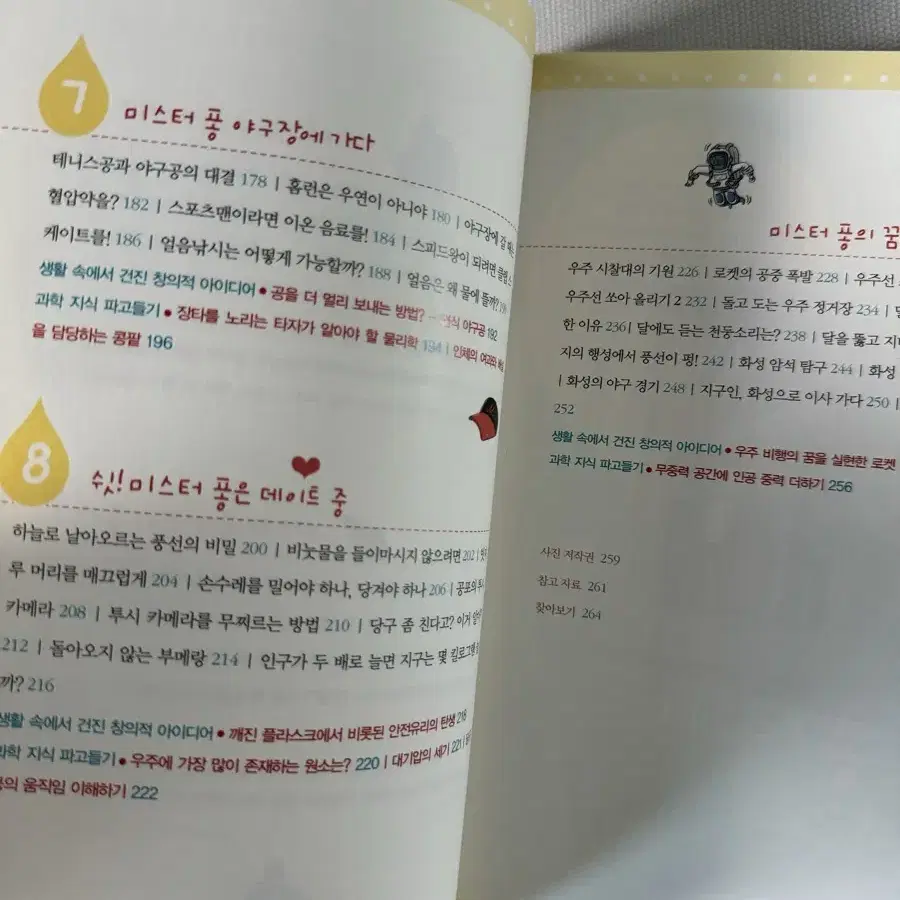 7
미스터 퐁 야구장에 가다
테니스공과 야구공의 대결 178 | 홈런은 우연이 아니야 180 | 야구장에 갈 때는
혈압약을? 182 | 스포츠맨이라면 이온 음료를! 184 | 스피드왕이 되려면 클랩 스
케이트를! 186 | 얼음낚시는 어떻게 가능할까? 188 | 얼음은 왜 물에 뜰까?
생활 속에서 건진 창의적 아이디어 • 공을 더 멀리 보내는 방법? 야구공 192
과학 지식 파고들기 • 장타를 노리는 타자가 알아야 할 물리학 194 | 인체의 여과와 배설
을 담당하는 콩팥 196
8
쉿! 미스터 퐁은 데이트 중
하늘로 날아오르는 풍선의 비밀 200 | 비눗물을 들이마시지 않으려면 202 |
루 머리를 매끄럽게 204 | 손수레를 밀어야 하나, 당겨야 하나 206 | 공포의 투시
카메라 208 | 투시 카메라를 무찌르는 방법 210 | 당구 좀 친다고? 이거
212 | 돌아오지 않는 부메랑 214 | 인구가 두 배로 늘면 지구는 몇 킬로그램
까? 216
생활 속에서 건진 창의적 아이디어 • 깨진 플라스크에서 비롯된 안전유리의 탄생 218
과학 지식 파고들기 • 우주에 가장 많이 존재하는 원소는? 220 | 대기압의 세기 221 |
의 움직임 이해하기 222
미스터 퐁의 꿈
우주 시찰대의 기원 226 | 로켓의 공중 폭발 228 | 우주선
우주선 쏘아 올리기 2 232 | 돌고 도는 우주 정거장 234 |
한 이유 236 | 달에도 듣는 천둥소리는? 238 | 달을 뚫고 지
지의 행성에서 풍선이 펑! 242 | 화성 암석 탐구 244 | 화성
| 화성의 야구 경기 248 | 지구인, 화성으로 이사 가다 250 |
252
생활 속에서 건진 창의적 아이디어 • 우주 비행의 꿈을 실현한 로켓
과학 지식 파고들기 • 무중력 공간에 인공 중력 더하기 256
사진 저작권 259
참고 자료 261
찾아보기 264